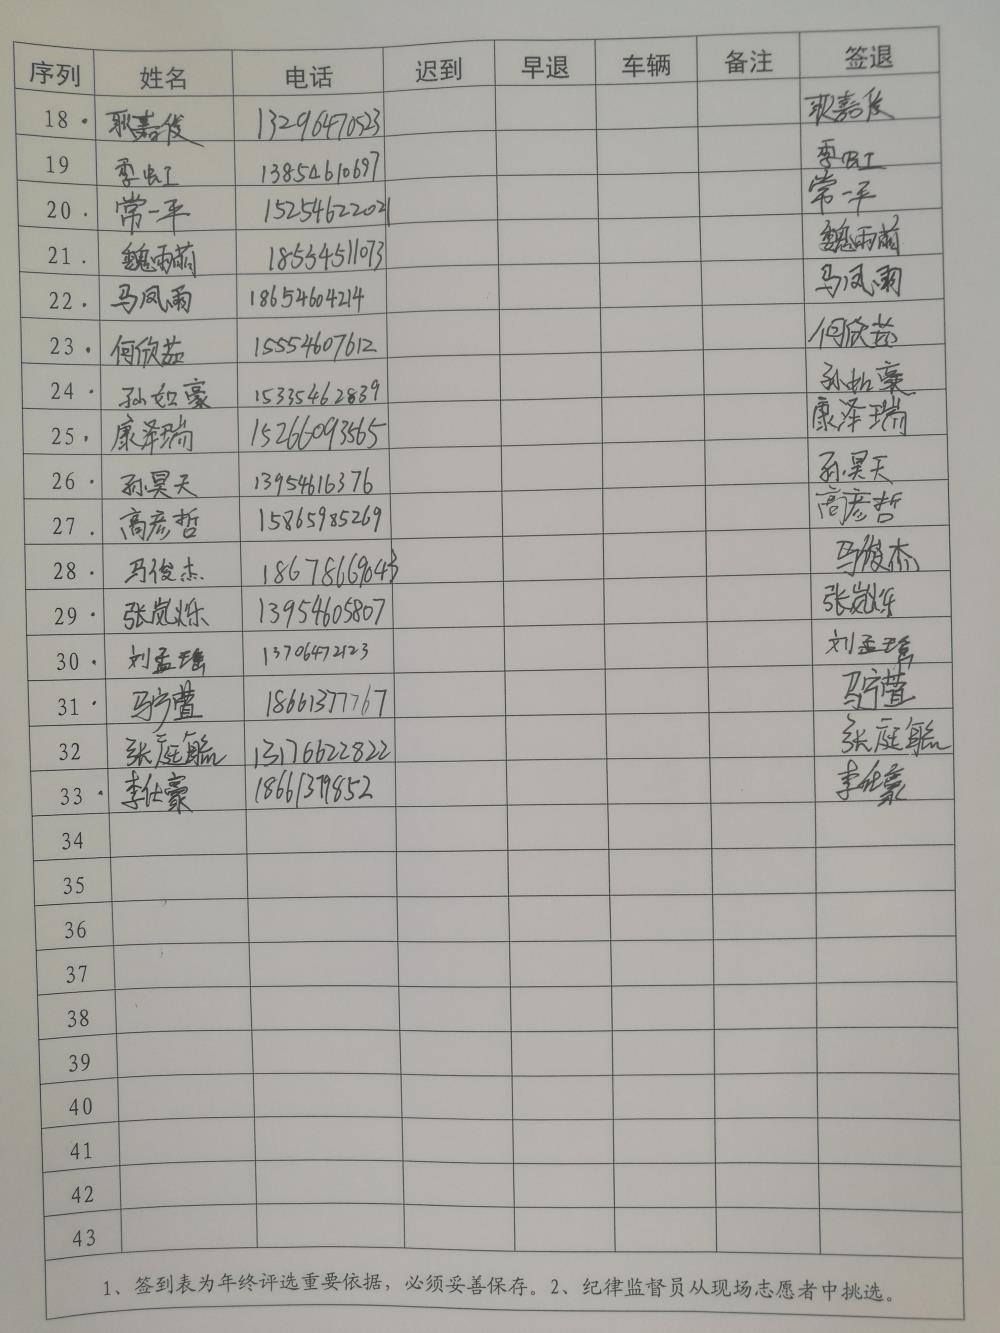 序列 姓名 电话 迟到 早退 车辆 备注 签退
18 耿嘉俊 13296470523 耿嘉俊
19 季虹 13854610697 季虹
20 常一平 15254622021 常一平
21 魏雨萌 18554511073 魏雨萌
22 马凤雨 18654604214 马凤雨
23 何欣茹 15554607612 何欣茹
24 孙如豪 15335462839 孙如豪
25 康泽瑞 15266093565 康泽瑞
26 孙昊天 13954616376 孙昊天
27 高彦哲 15865985269 高彦哲
28 马俊杰 马俊杰
29 张岚烁 13954605807 张岚烁
30 刘孟瑶 13706472123 刘孟瑶
31 马宁萱 18661377767 马宁萱
32 张庭毓 13176622822 张庭毓
33 李仕豪 18661379852 李仕豪
34
35
36
37
38
39
40
41
42
43
1、签到表为年终评选重要依据，必须妥善保存。2、纪律监督员从现场志愿者中挑选。